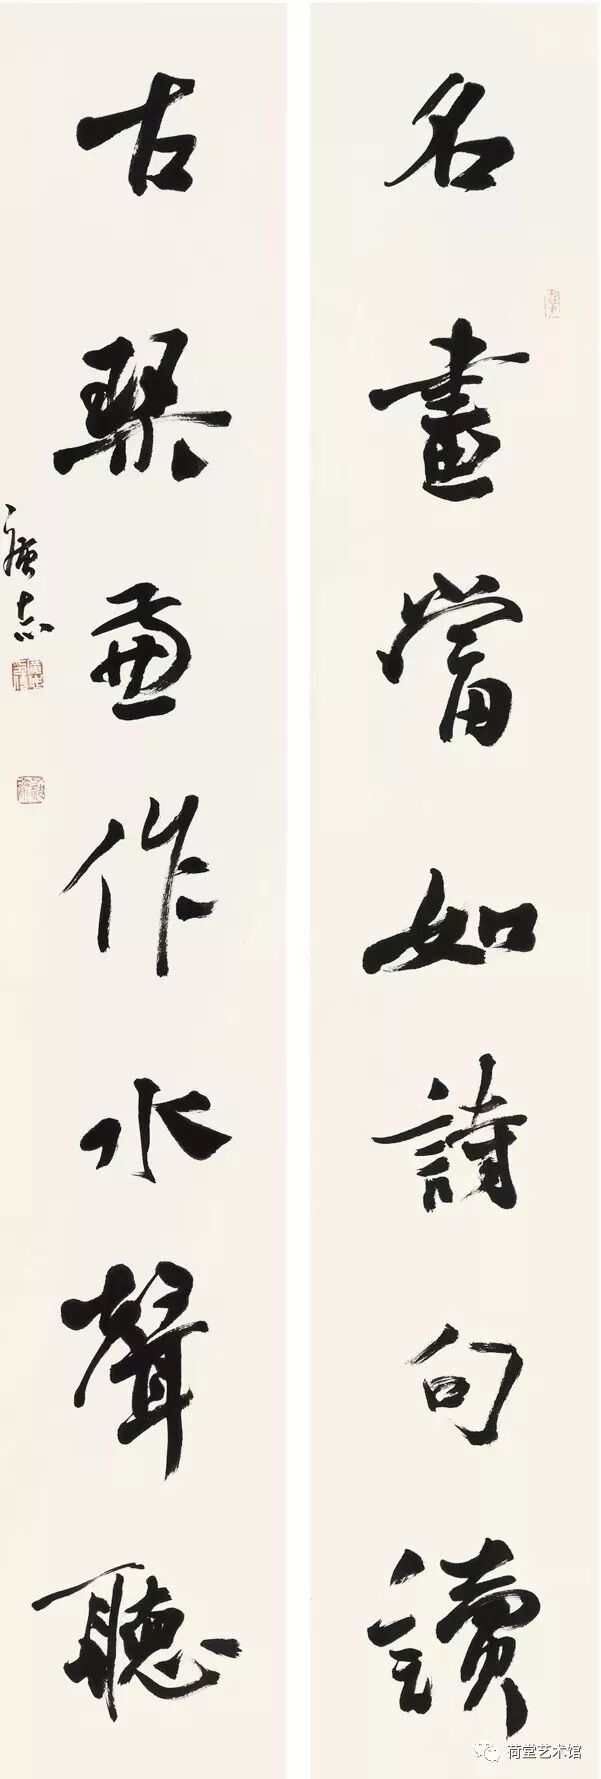 名畫當如詩句讀
古琴兼作水聲聽
廣志
荷堂艺术馆